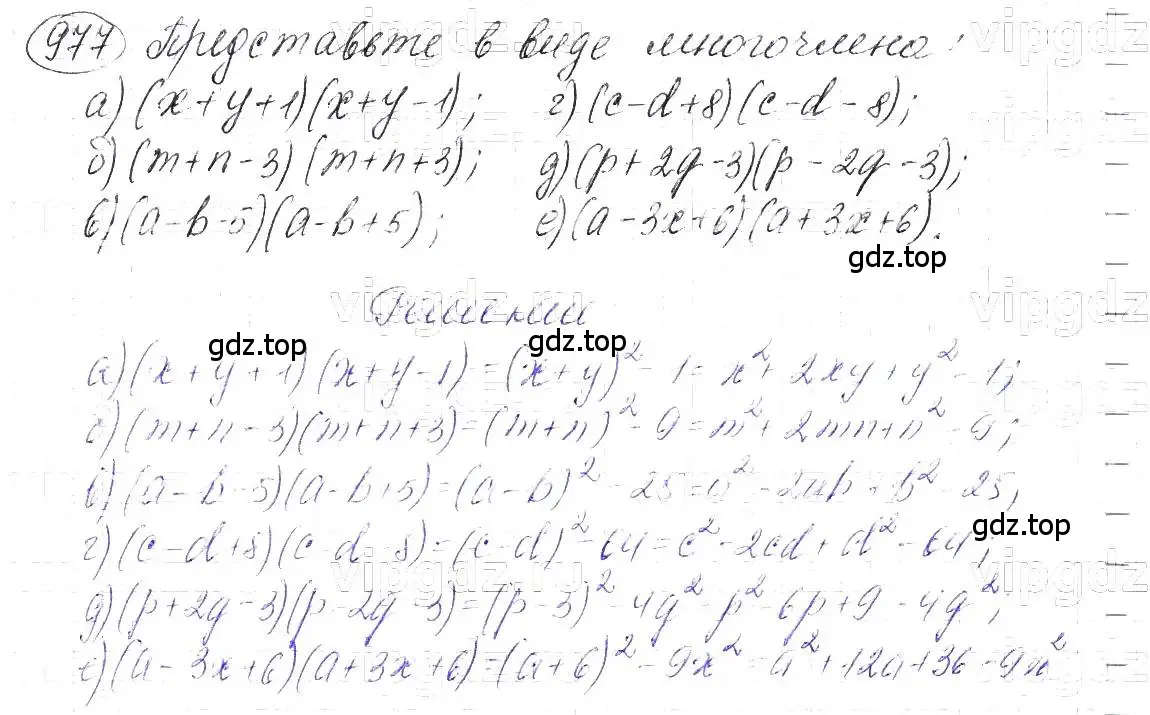 977 Представьте в виде многочлена:
а) (x+y+1)(x+y-1); г) (c-d+8)(c-d-8);
б) (m+n-3)(m+n+3); д) (p+2q-3)(p-2q-3);
в) (a-b-5)(a-b+5); е) (a-3x+6)(a+3x+6).
gdz.top
Решение
gdz.top gdz.top
а) (x+y+1)(x+y-1)=(x+y)²-1=x²+2xy+y²-1;
б) (m+n-3)(m+n+3)=(m+n)²-9=m²+2mn+n²-9;
в) (a-b-5)(a-b+5)=(a-b)²-25=a²-2ab+b²-25;
gdz.top
г) (c-d+8)(c-d-8)=(c-d)²-64=c²-2cd+d²-64;
д) (p+2q-3)(p-2q-3)=(p-3)²-4q²=p²-6p+9-4q²;
е) (a-3x+6)(a+3x+6)=(a+6)²-9x²=a²+12a+36-9x²